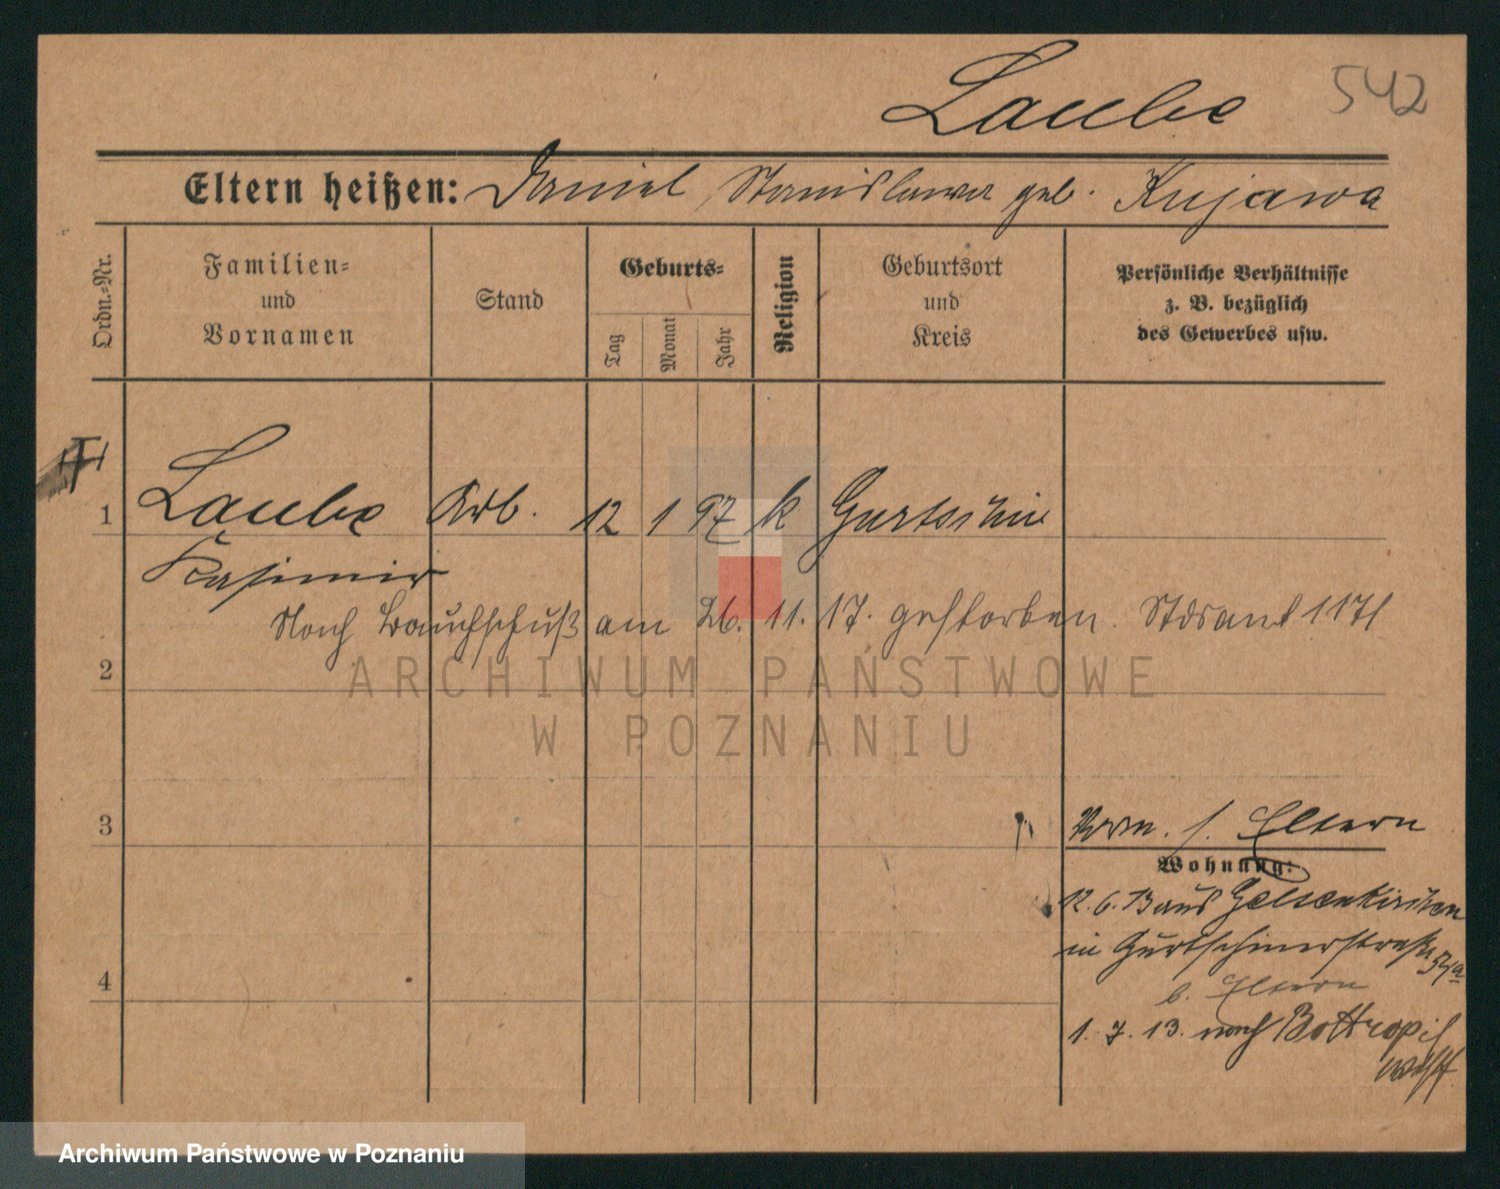 542
Laube
Eltern heißen: Daniel, Stanislawa geb. Kujawa
Ordn.=Nr.
Familien=
und
Vornamen
Stand
Geburts=
Tag
Monat
Jahr
Religion
Geburtsort
und
Kreis
Persönliche Verhältnisse
z. B. bezüglich
des Gewerbes usw.
1 Laube Arb. 12 1 97 k Gurtschin
Kasimir
Nach Bauchschuß am 26. 11. 17. gestorben. Stdsamt 1171
2
3
Vorm. s. Eltern
Wohnung:
12. 6. 13 aus Gelsenkirchen
in Gurtschinerstraße
b. Eltern
4
1. 7. 13. nach Bottrop i/
Westf.
ARCHIWUM PAŃSTWOWE
W POZNANIU
Archiwum Państwowe w Poznaniu